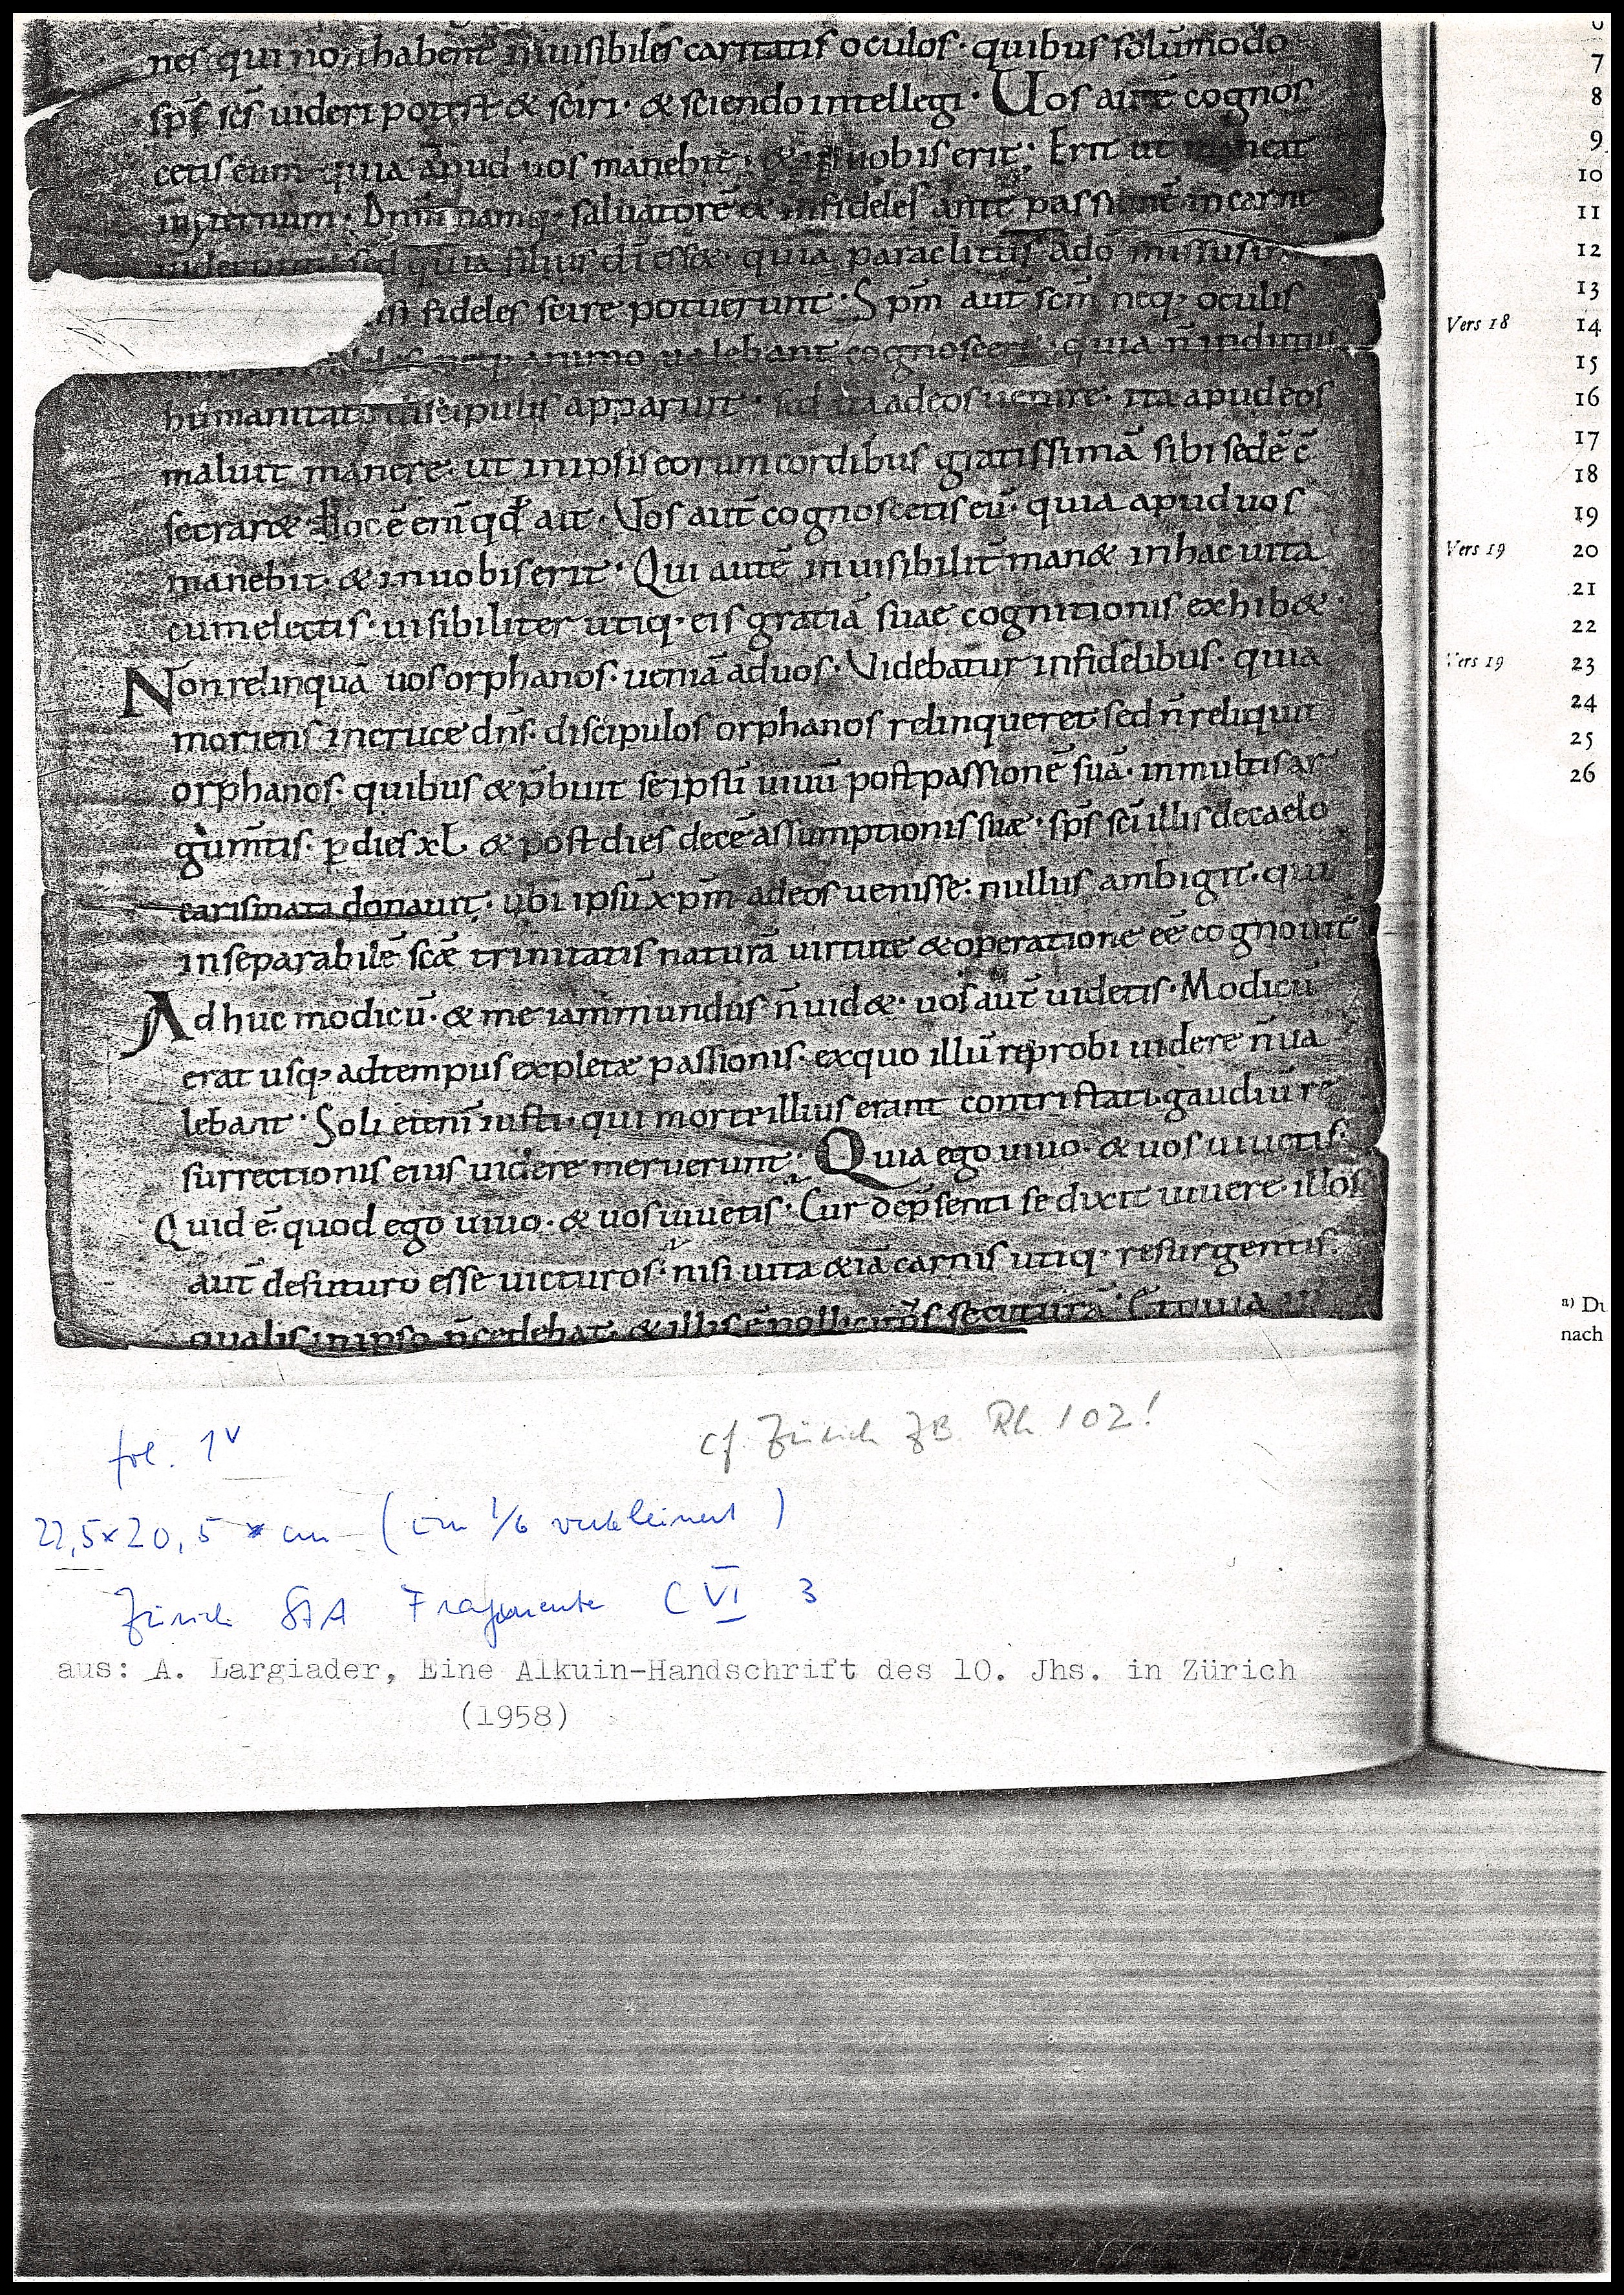 nes qui non habent inuisibiles caritatis oculos· quibus solūmodo
sp̄s sc̄s uideri potest & sciri· & sciendo intellegi· Uos autē cognos
cetis eum quia apud uos manebit· & in uobis erit· Erit ut maneat
in &ernum· Dn̄m namq· saluatorē & infideles ante passionē in carne
uiderunt sed quia filius dī ess&· quia paraclitus adō missus in
fideles scire potuerunt· Sp̄m aut̄ sc̄m neq· oculis
neq· animo ualebant cognoscere· quia n̄ indutus
humanitate discipulis apparuit· sed ita ad eos uenire· ita apud eos
maluit manere· ut in ipsis eorum cordibus gratissimā sibi sedē
secrar& Hoc ē enī qd ait· Uos aut̄ cognoscetis eū· quia apud uos
manebit· & in uobis erit· Qui autē inuisibilit̄ man& in hac uita
cum electis· uisibiliter utiq· eis gratiā suae cognitionis exhib&·
Non relinquā uos orphanos· ueniā ad uos· Videbatur infidelibus· quia
moriens in cruce dn̄s· discipulos orphanos relinqueret sed n̄ reliquit
orphanos· quibus & p̄buit se ipsū uiuū post passionē suā· in multis ar
gum̄tis· p dies xL & post dies decē assumptionis suae· sp̄s sc̄i illis de caelo
carismata donauit· ubi ipsū xp̄m ad eos uenisse· nullus ambigit· qui
inseparabilē scæ trinitatis naturā uirtute & operatione eē cognouit
Ad huc modicū· & me iam mundus n̄ uid&· uos aut̄ uidetis· Modicū
erat usq· ad tempus explet& passionis· ex quo illū reprobi uidere n̄ ua
lebant· Soli etenī iusti· qui morte illius erant contristati· gaudiū re
surrectionis eius uidere meruerunt· Quia ego uiuo· & uos uiuetis·
Quid ē· quod ego uiuo· & uos uiuetis· Cur de p̄senti se dixit uiuere· illos
aut̄ de futuro esse uicturos· nisi uita &iā carnis utiq· resurgentis·
qualis in ipso p̄cedebat· & illis ē pollicitus secuturā· Et quia
7
8
9
10
11
12
13
Vers 18 14
15
16
17
18
19
Vers 19 20
21
22
Vers 19 23
24
25
26
a) Du
nach
fol. 1v
cf. Zürich ZB Rh 102!
22,5x20,5 cm (um 1/6 verkleinert)
Zürich StA Fragmente C VI 3
aus: A. Largiader, Eine Alkuin-Handschrift des 10. Jhs. in Zürich
(1958)